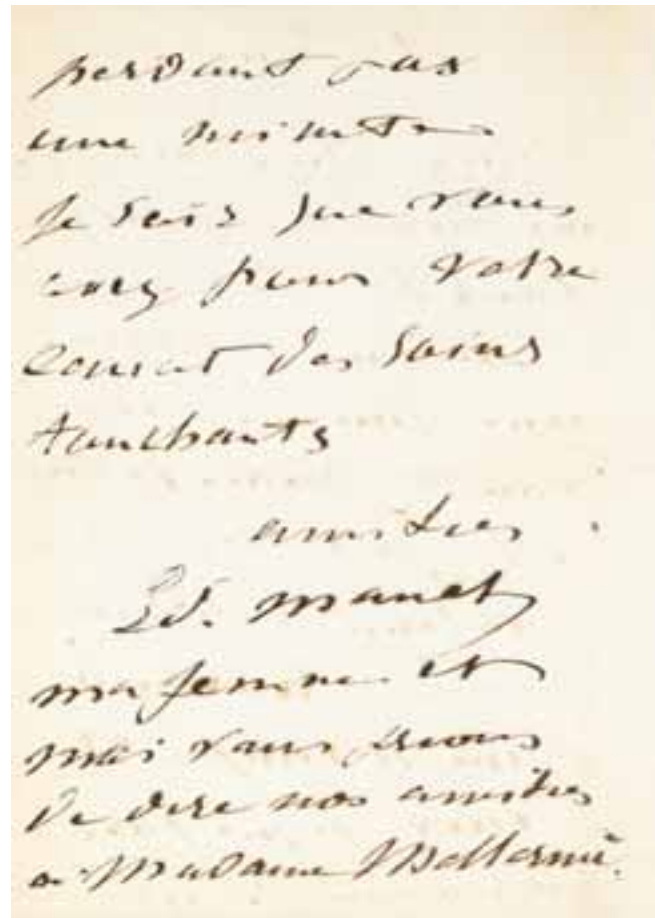 perdant pas
une minute
je sais que vous
avez pour votre
convat des soins
touchants
amitiés.
Ed. Manet
ma femme et
moi vous prions
de dire nos amitiés
a Madame Mallarmé.